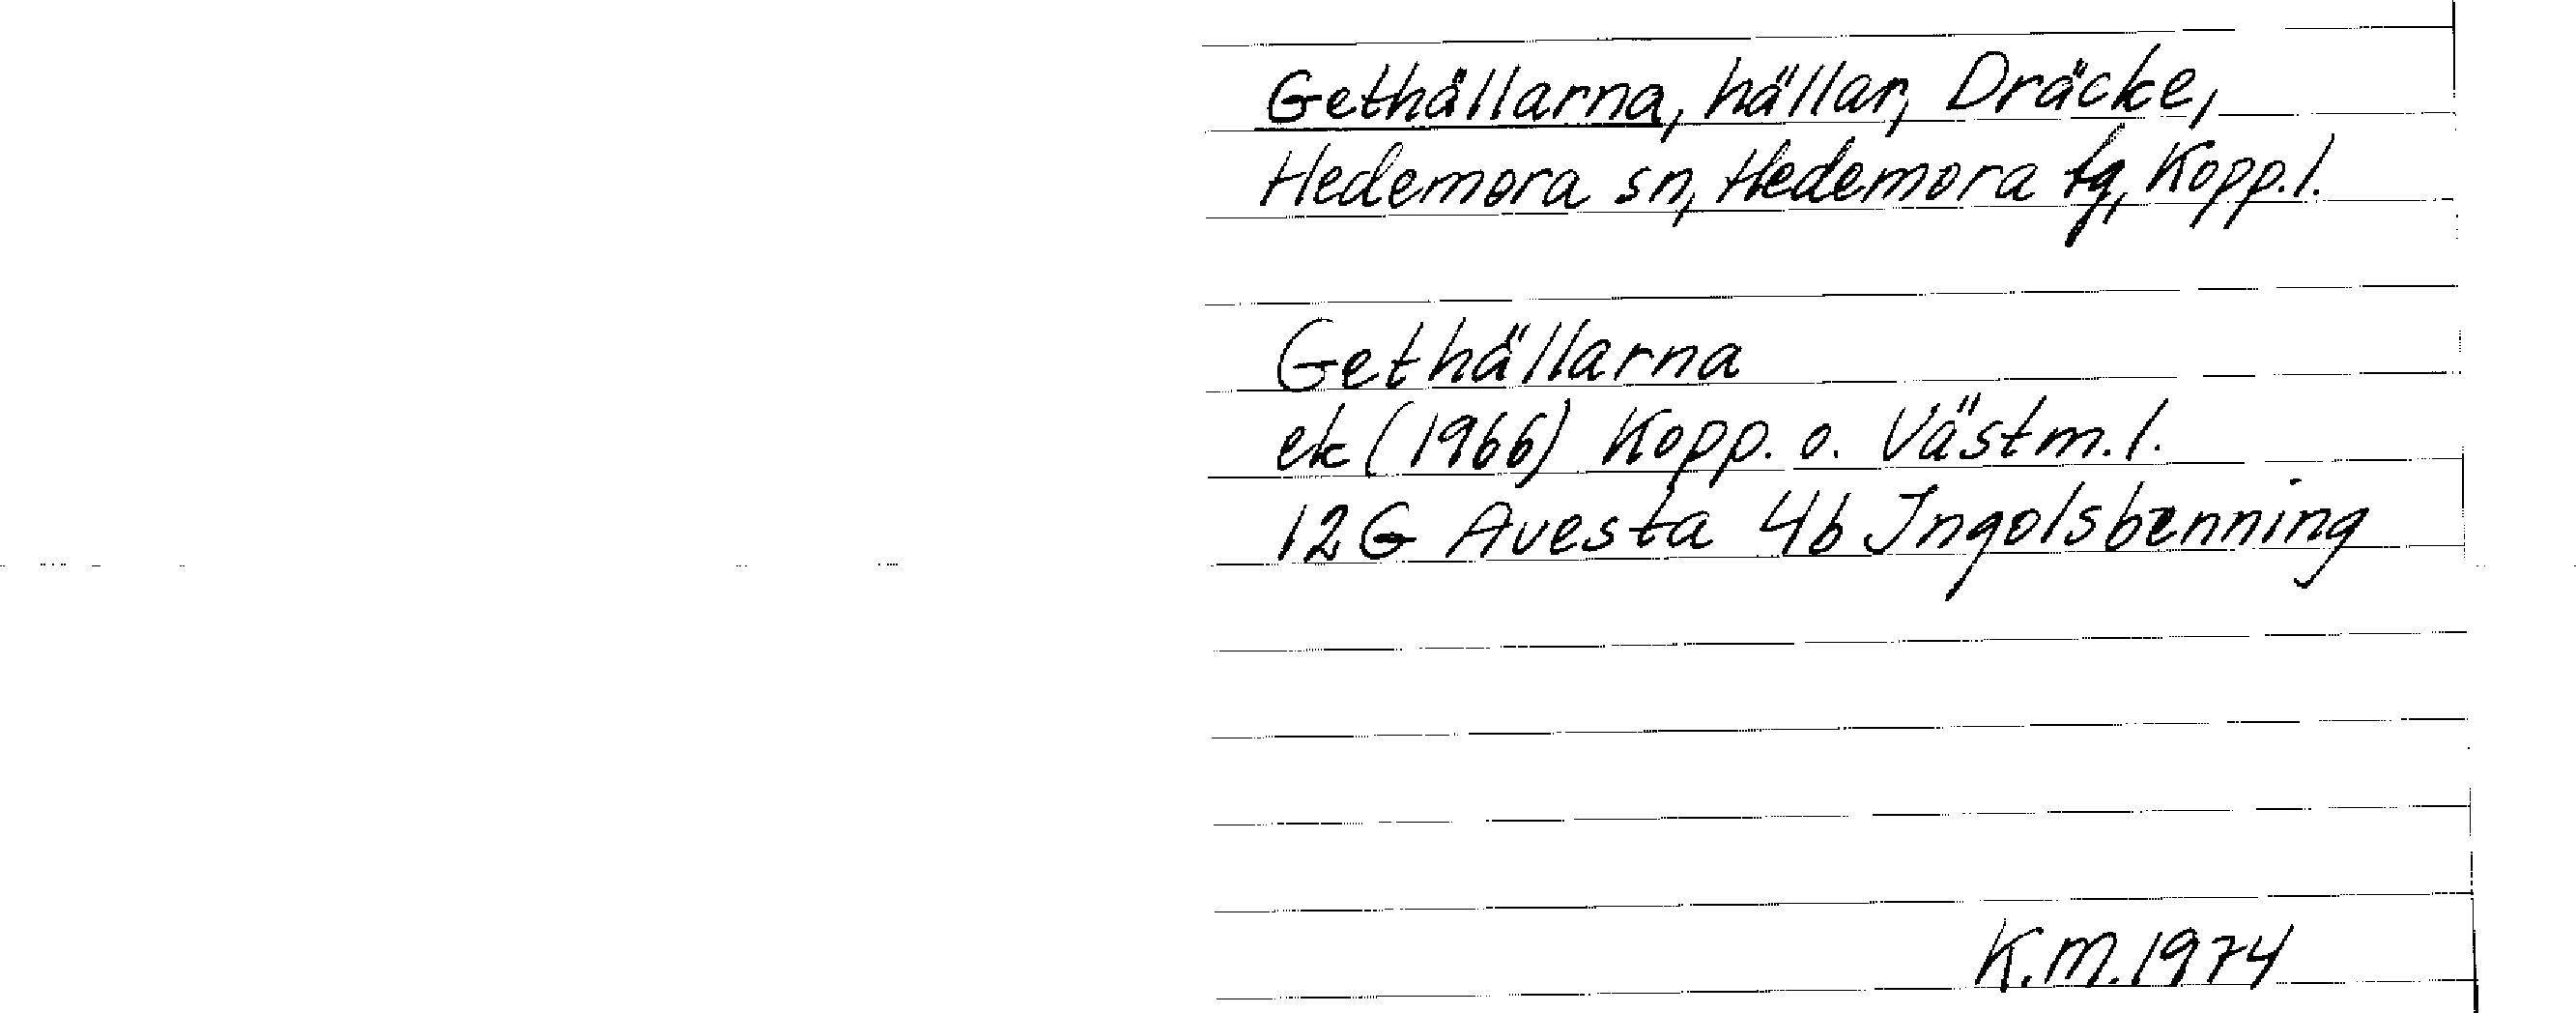 Gethällarna, hällar, Dräcke,
Hedemora sn, Hedemora tg, Kopp.l.
Gethällarna
ek (1966) Kopp. o. Västm.l.
12G Avesta 4b Ingolsbenning
K.M.1974